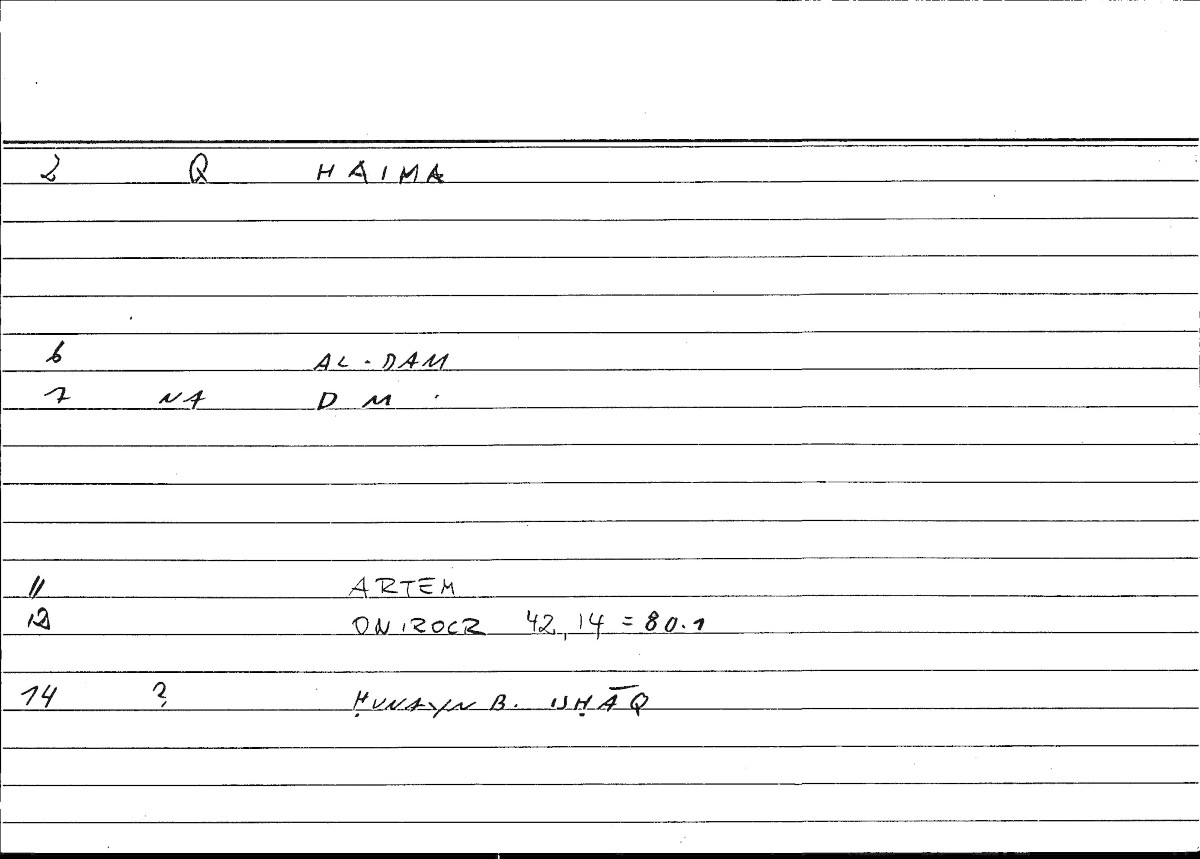 2 Q HAIMA
6 AL-DAM
7 NA DM
11 ARTEM
12 ONIROCR 42,14 = 80.1
14 ? ḤUNAYN B. ISḤĀQ